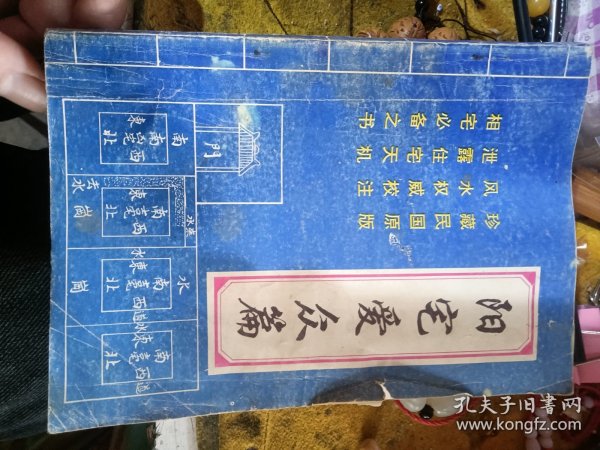 相宅必备之书
泄露住宅天机
风水权威校注
珍藏民国原版
阳宅爱众篇
門
南
東
南宅西
北
去水
水來
崗
東
南宅西
北
水
水
崗
東
南宅西
北
道
水
東
南宅西
北
道
孔夫子旧书网
www.kongfz.com